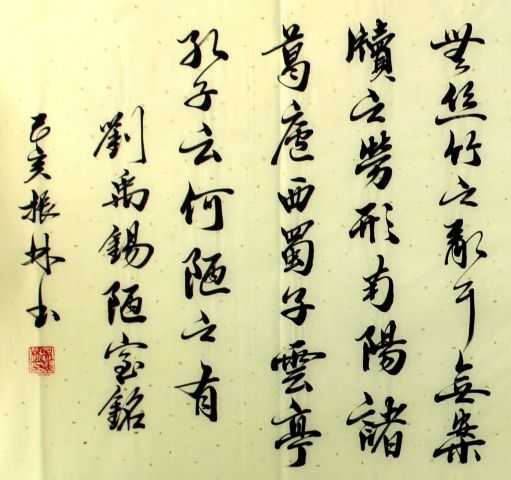 無丝竹之亂耳無案
牘之勞形南陽諸
葛廬西蜀子雲亭
孔子云何陋之有
劉禹錫陋室銘
己亥振林书